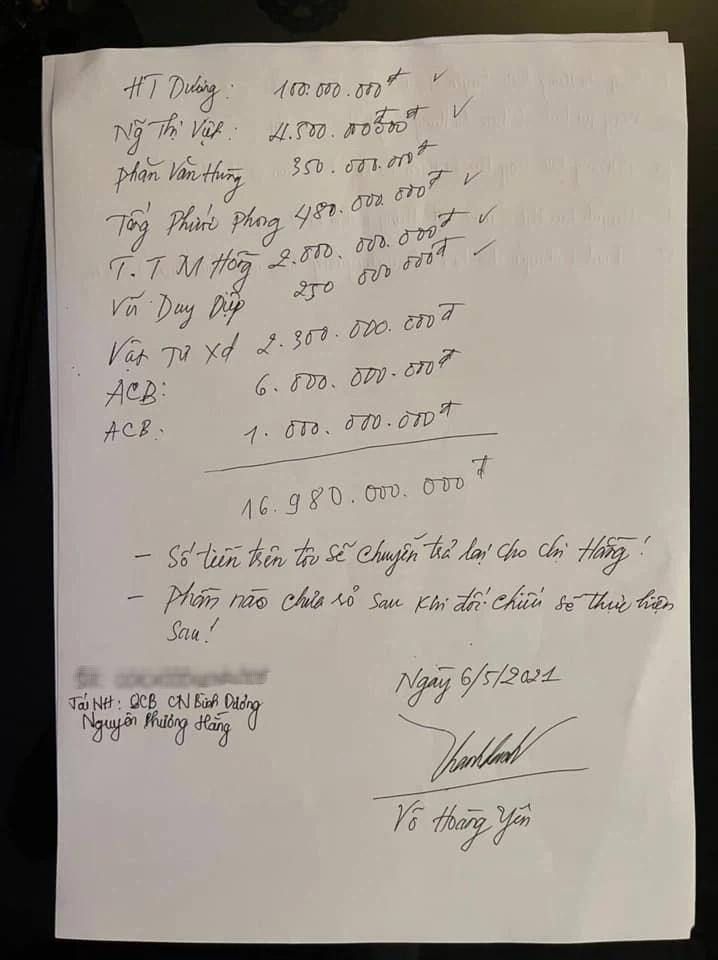 HT Dương: 100.000.000đ ✓
Ng Thị Việt: 4.500.000.000đ ✓
Phần Văn Hùng 350.000.000đ
Tống Phước Phong 480.000.000đ ✓
T. T M Hồng 2.000.000.000đ ✓
Vũ Duy Diệp 250 000 000đ ✓
Vật Tư Xd 2.300.000.000đ
ACB: 6.000.000.000đ
ACB: 1.000.000.000đ
16.980.000.000đ
- Số tiền trên tôi sẽ chuyển trả lại cho chị Hằng!
- Phần nào chưa rỏ sau khi đối chiếu sẽ thực hiện
sau!
Tại NH: ACB CN Bình Dương
Nguyễn Phương Hằng
Ngày 6/5/2021
Võ Hoàng Yên